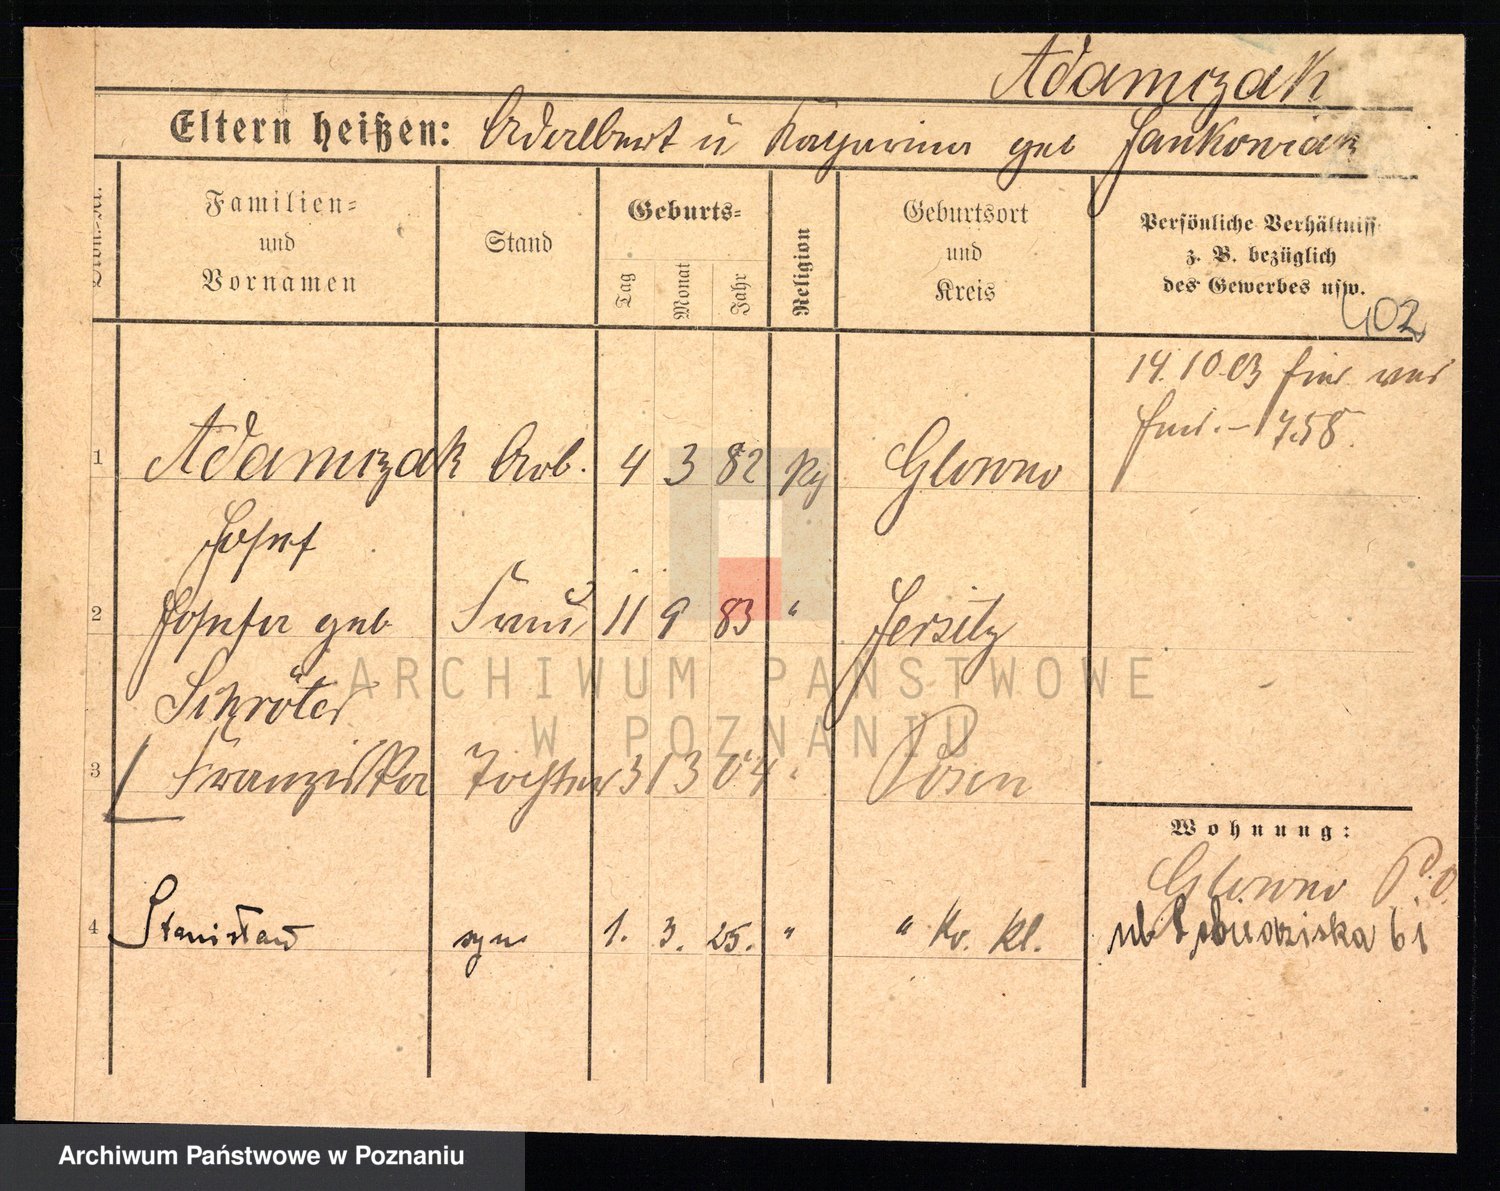 Adamczak
Eltern heißen: Adalbert u Katharina geb Jankowiak
Familien= und Vornamen
Stand
Geburts=
Tag Monat Jahr
Religion
Geburtsort und Kreis
Persönliche Verhältniss
z. B. bezüglich
des Gewerbes usw.
402
14.10.03
758.
1 Adamczak Arb. 4 3 82 Glowno
Josef
2 Josefa geb Frau 11 9 83 " Jersitz
Schröter
3 Franziska Tochter 31 3 04 " Posen
Wohnung:
Glowno P.O.
4 Stanisław syn 1. 3. 25. " " Kr. Kl.
61
ARCHIWUM PAŃSTWOWE
W POZNANIU
Archiwum Państwowe w Poznaniu